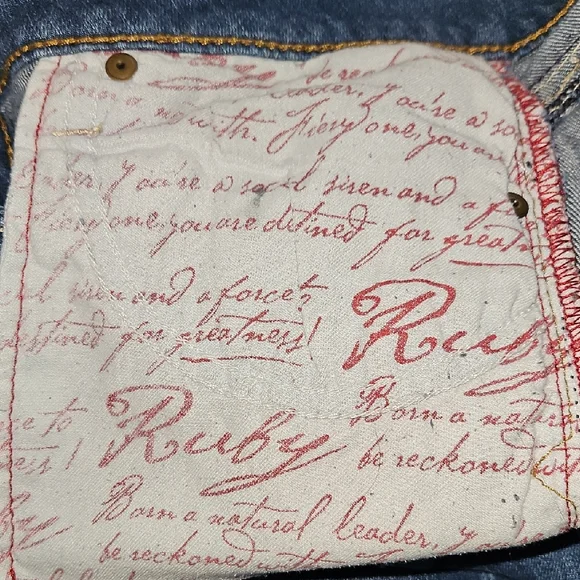 Born a leader, you're a so
with. Fiery one, you are
you're a social siren and a fo
Fiery one, you are detined for greatn
siren and a force to
destined for greatness!
Ruby
Born a natural
be reckoned wi
Ruby
Born a natural leader, y
be reckoned with